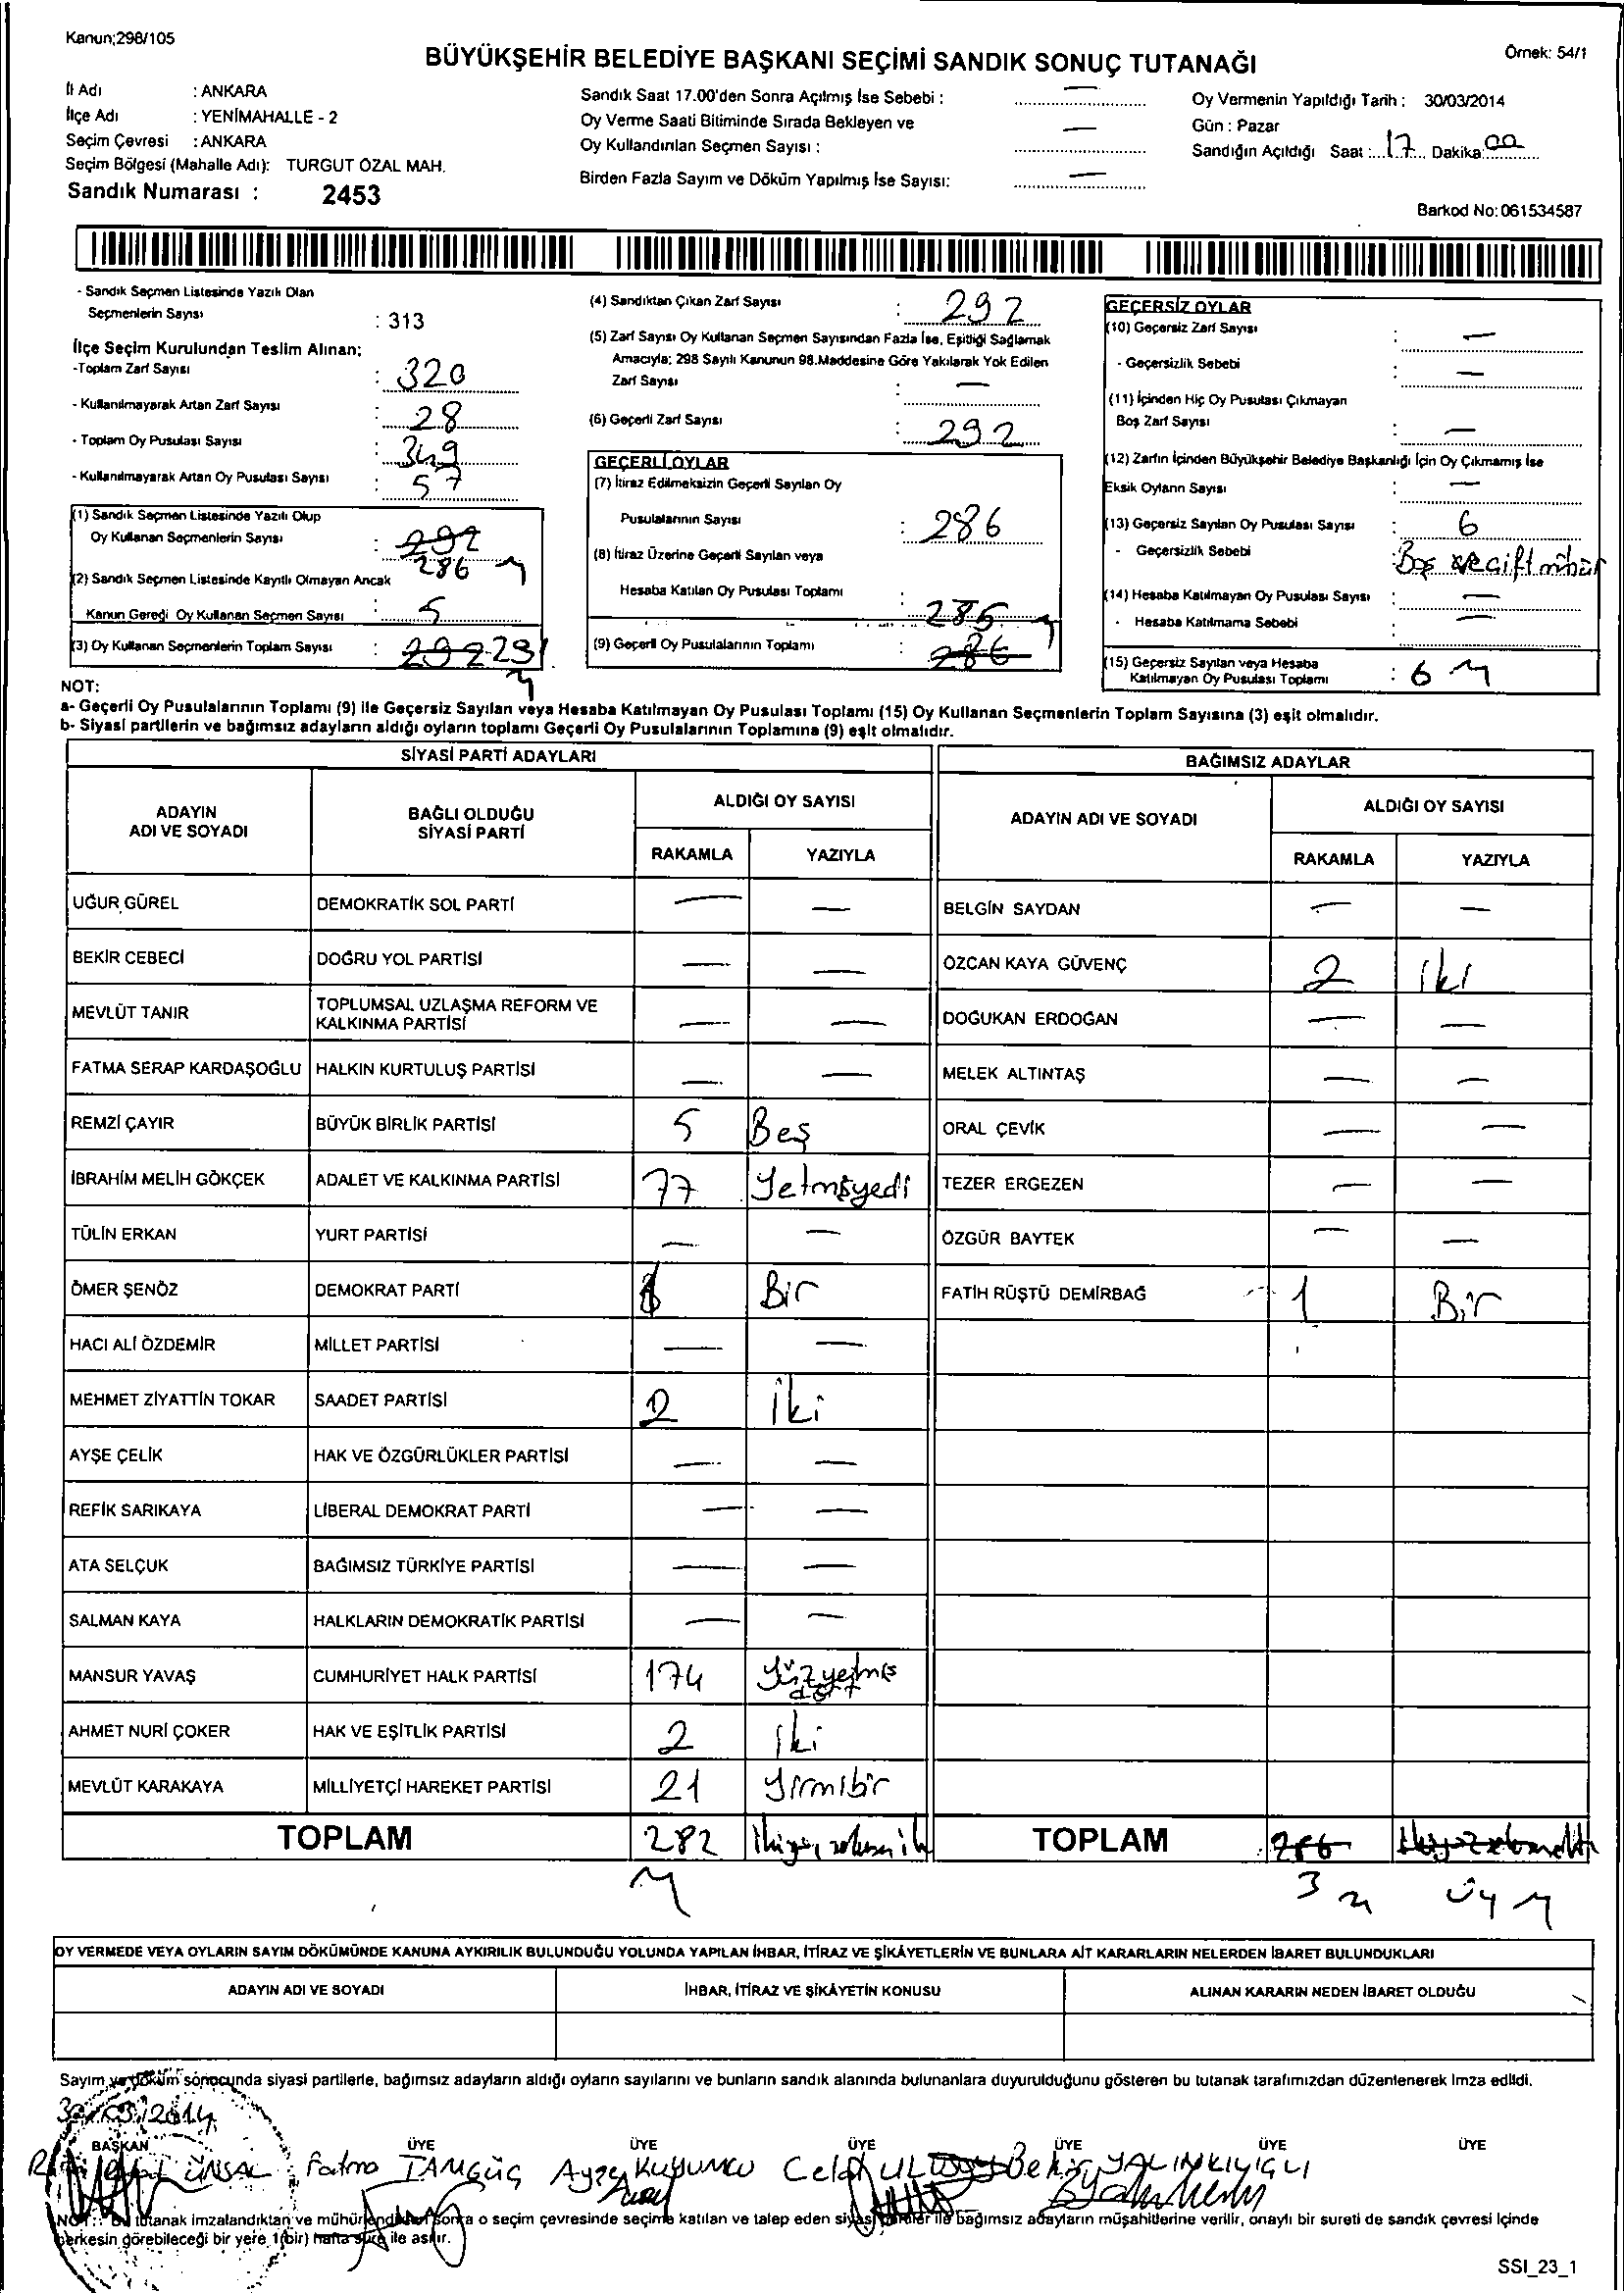 Kanun;298/105
Örnek: 54/1
BÜYÜKŞEHİR BELEDİYE BAŞKANI SEÇİMİ SANDIK SONUÇ TUTANAĞI
İl Adı : ANKARA
İlçe Adı : YENİMAHALLE - 2
Seçim Çevresi : ANKARA
Seçim Bölgesi (Mahalle Adı): TURGUT ÖZAL MAH.
Sandık Numarası : 2453
Sandık Saat 17.00'den Sonra Açılmış İse Sebebi : —
Oy Verme Saati Bitiminde Sırada Bekleyen ve
Oy Kullandırılan Seçmen Sayısı : —
Birden Fazla Sayım ve Döküm Yapılmış İse Sayısı: —
Oy Vermenin Yapıldığı Tarih : 30/03/2014
Gün : Pazar
Sandığın Açıldığı Saat : 17 Dakika: 00
Barkod No: 061534587
- Sandık Seçmen Listesinde Yazılı Olan
Seçmenlerin Sayısı : 313
İlçe Seçim Kurulundan Teslim Alınan;
-Toplam Zarf Sayısı : 320
- Kullanılmayarak Artan Zarf Sayısı : 28
- Toplam Oy Pusulası Sayısı : 349
- Kullanılmayarak Artan Oy Pusulası Sayısı : 57
(1) Sandık Seçmen Listesinde Yazılı Olup
Oy Kullanan Seçmenlerin Sayısı : 292
286
(2) Sandık Seçmen Listesinde Kayıtlı Olmayan Ancak
Kanun Gereği Oy Kullanan Seçmen Sayısı : 5
(3) Oy Kullanan Seçmenlerin Toplam Sayısı : 292 291
(4) Sandıktan Çıkan Zarf Sayısı : 292
(5) Zarf Sayısı Oy Kullanan Seçmen Sayısından Fazla İse, Eşitliği Sağlamak
Amacıyla; 298 Sayılı Kanunun 98.Maddesine Göre Yakılarak Yok Edilen
Zarf Sayısı : —
(6) Geçerli Zarf Sayısı : 292
GEÇERLİ OYLAR
(7) İtiraz Edilmeksizin Geçerli Sayılan Oy
Pusulalarının Sayısı : 286
(8) İtiraz Üzerine Geçerli Sayılan veya
Hesaba Katılan Oy Pusulası Toplamı :
285
(9) Geçerli Oy Pusulalarının Toplamı : 286
GEÇERSİZ OYLAR
(10) Geçersiz Zarf Sayısı : —
- Geçersizlik Sebebi : —
(11) İçinden Hiç Oy Pusulası Çıkmayan
Boş Zarf Sayısı : —
(12) Zarfın İçinden Büyükşehir Belediye Başkanlığı İçin Oy Çıkmamış İse
Eksik Oyların Sayısı : —
(13) Geçersiz Sayılan Oy Pusulası Sayısı : 6
- Geçersizlik Sebebi : Boş ve çift mühür
(14) Hesaba Katılmayan Oy Pusulası Sayısı : —
- Hesaba Katılmama Sebebi : —
(15) Geçersiz Sayılan veya Hesaba
Katılmayan Oy Pusulası Toplamı : 6
NOT:
a- Geçerli Oy Pusulalarının Toplamı (9) ile Geçersiz Sayılan veya Hesaba Katılmayan Oy Pusulası Toplamı (15) Oy Kullanan Seçmenlerin Toplam Sayısına (3) eşit olmalıdır.
b- Siyasi partilerin ve bağımsız adayların aldığı oyların toplamı Geçerli Oy Pusulalarının Toplamına (9) eşit olmalıdır.
SİYASİ PARTİ ADAYLARI
ADAYIN ADI VE SOYADI
BAĞLI OLDUĞU SİYASİ PARTİ
ALDIĞI OY SAYISI
RAKAMLA YAZIYLA
UĞUR GÜREL DEMOKRATİK SOL PARTİ — —
BEKİR CEBECİ DOĞRU YOL PARTİSİ — —
MEVLÜT TANIR TOPLUMSAL UZLAŞMA REFORM VE KALKINMA PARTİSİ — —
FATMA SERAP KARDAŞOĞLU HALKIN KURTULUŞ PARTİSİ — —
REMZİ ÇAYIR BÜYÜK BİRLİK PARTİSİ 5 Beş
İBRAHİM MELİH GÖKÇEK ADALET VE KALKINMA PARTİSİ 77 Yetmişyedi
TÜLİN ERKAN YURT PARTİSİ — —
ÖMER ŞENÖZ DEMOKRAT PARTİ 1 Bir
HACI ALİ ÖZDEMİR MİLLET PARTİSİ — —
MEHMET ZİYATTİN TOKAR SAADET PARTİSİ 2 İki
AYŞE ÇELİK HAK VE ÖZGÜRLÜKLER PARTİSİ — —
REFİK SARIKAYA LİBERAL DEMOKRAT PARTİ — —
ATA SELÇUK BAĞIMSIZ TÜRKİYE PARTİSİ — —
SALMAN KAYA HALKLARIN DEMOKRATİK PARTİSİ — —
MANSUR YAVAŞ CUMHURİYET HALK PARTİSİ 174 Yüzyetmiş dört
AHMET NURİ ÇOKER HAK VE EŞİTLİK PARTİSİ 2 iki
MEVLÜT KARAKAYA MİLLİYETÇİ HAREKET PARTİSİ 21 Yirmibir
TOPLAM 282 İkiyüz seksen iki
BAĞIMSIZ ADAYLAR
ADAYIN ADI VE SOYADI
ALDIĞI OY SAYISI
RAKAMLA YAZIYLA
BELGİN SAYDAN — —
ÖZCAN KAYA GÜVENÇ 2 iki
DOĞUKAN ERDOĞAN — —
MELEK ALTINTAŞ — —
ORAL ÇEVİK — —
TEZER ERGEZEN — —
ÖZGÜR BAYTEK — —
FATİH RÜŞTÜ DEMİRBAĞ 1 Bir
TOPLAM 286
3 Üç
OY VERMEDE VEYA OYLARIN SAYIM DÖKÜMÜNDE KANUNA AYKIRILIK BULUNDUĞU YOLUNDA YAPILAN İHBAR, İTİRAZ VE ŞİKÂYETLERİN VE BUNLARA AİT KARARLARIN NELERDEN İBARET BULUNDUKLARI
ADAYIN ADI VE SOYADI İHBAR, İTİRAZ VE ŞİKÂYETİN KONUSU ALINAN KARARIN NEDEN İBARET OLDUĞU
Sayım ve döküm sonucunda siyasi partilerle, bağımsız adayların aldığı oyların sayılarını ve bunların sandık alanında bulunanlara duyurulduğunu gösteren bu tutanak tarafımızdan düzenlenerek imza edildi.
30/03/2014
BAŞKAN ÜYE ÜYE ÜYE ÜYE ÜYE ÜYE
ÜNSAL Fatma TAMGÜÇ Ayşe KUYUMCU Celal Bekir YALINKILIÇLI
NOT: Bu tutanak imzalandıktan ve mühürlendikten sonra o seçim çevresinde seçime katılan ve talep eden siyasi partiler ile bağımsız adayların müşahitlerine verilir, onaylı bir sureti de sandık çevresi içinde
herkesin görebileceği bir yere 1(bir) hafta süre ile asılır.
SSI_23_1